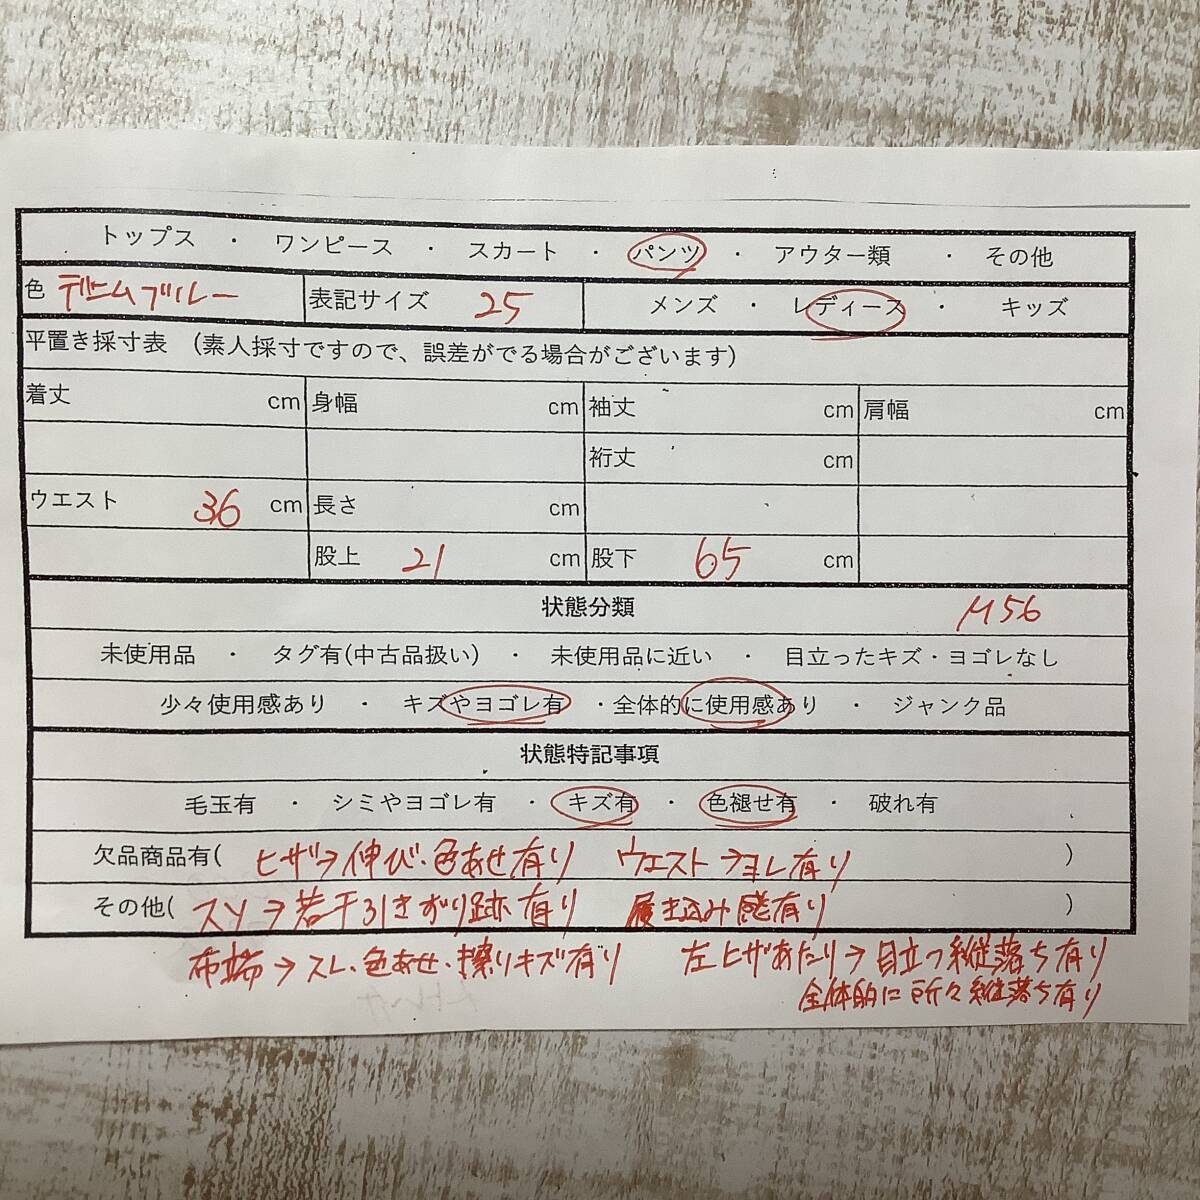 トップス ・ ワンピース ・ スカート ・ パンツ ・ アウター類 ・ その他
色 デニムブルー 表記サイズ 25 メンズ ・ レディース ・ キッズ
平置き採寸表 (素人採寸ですので、誤差がでる場合がございます)
着丈 cm 身幅 cm 袖丈 cm 肩幅 cm
裄丈 cm
ウエスト 36 cm 長さ cm
股上 21 cm 股下 65 cm
状態分類 M56
未使用品 ・ タグ有(中古品扱い) ・ 未使用品に近い ・ 目立ったキズ・ヨゴレなし
少々使用感あり ・ キズやヨゴレ有 ・全体的に使用感あり ・ ジャンク品
状態特記事項
毛玉有 ・ シミやヨゴレ有 ・ キズ有 ・ 色褪せ有 ・ 破れ有
欠品商品有( ヒザ→伸び・色あせ有り ウエスト→ヨレ有り )
その他( スソ→若干引きずり跡有り 履き込み感有り )
布端→スレ・色あせ・擦りキズ有り 左ヒザあたり→目立つ縦落ち有り
全体的に所々縦落ち有り